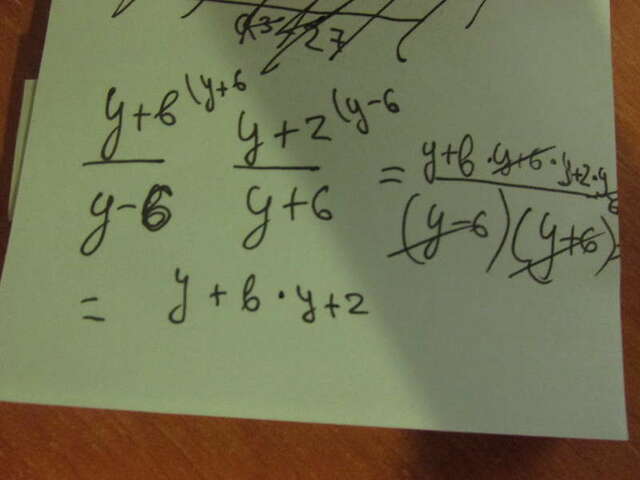 27
y+6 (y+6 y+2 (y-6
y-6 y+6
= y+6 · y+6 · y+2 · y-6
(y-6)(y+6) =
= y + 6 · y+2